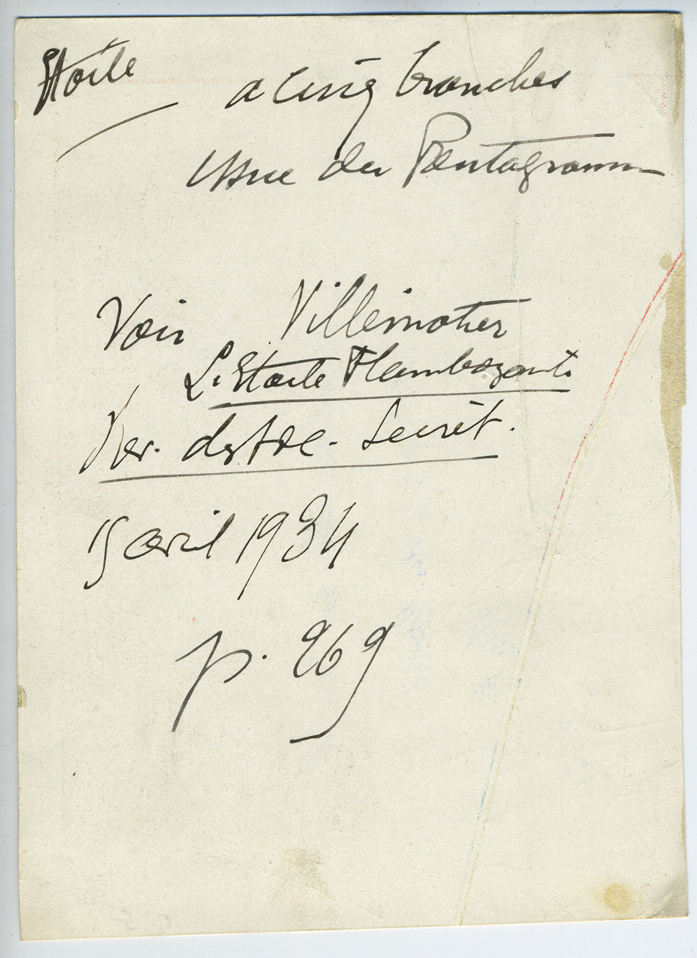 Etoile a cinq branches
issue du Pentagramme
Voir Villemotier
L'Etoile Flamboyante
Rev. des Soc. Secrèt.
15 avril 1934
p. 269